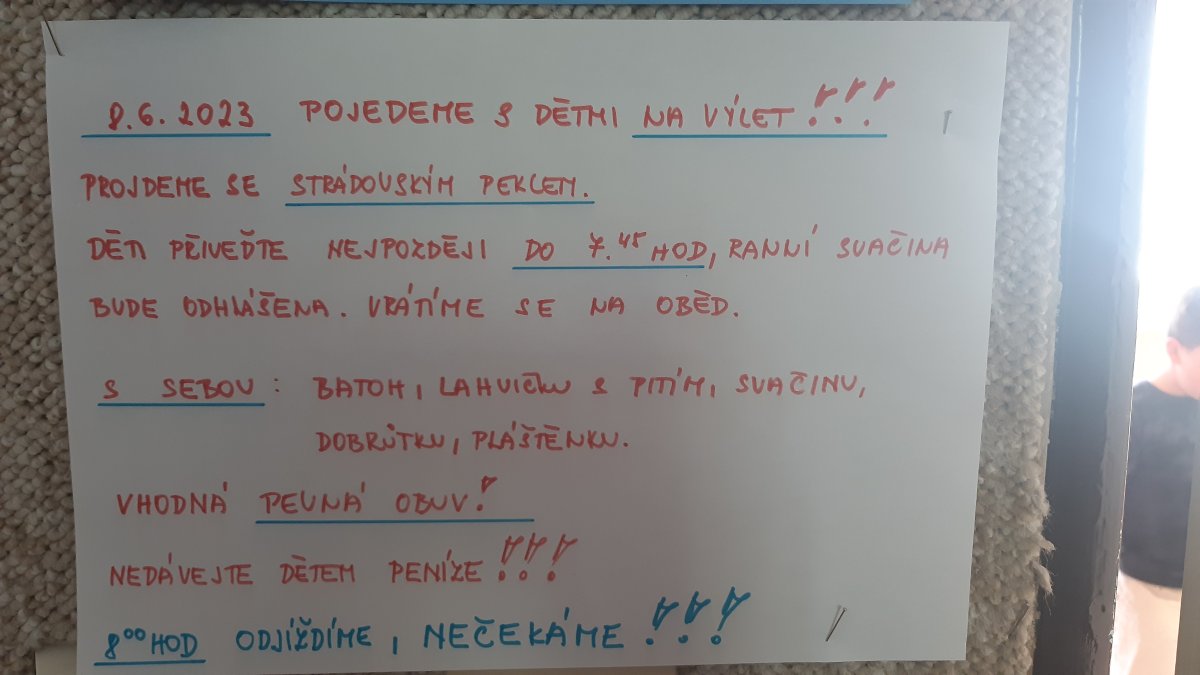 8.6.2023 POJEDEME S DĚTMI NA VÝLET!!!
PROJDEME SE STRÁDOVSKÝM PEKLEM.
DĚTI PŘIVEĎTE NEJPOZDĚJI DO 7.45 HOD, RANNÍ SVAČINA
BUDE ODHLÁŠENA. VRÁTÍME SE NA OBĚD.
S SEBOU: BATOH, LAHVIČKU S PITÍM, SVAČINU,
DOBRŮTKU, PLÁŠTĚNKU.
VHODNÁ PEVNÁ OBUV!
NEDÁVEJTE DĚTEM PENÍZE!!!
8⁰⁰ HOD ODJÍŽDÍME, NEČEKÁME!!!